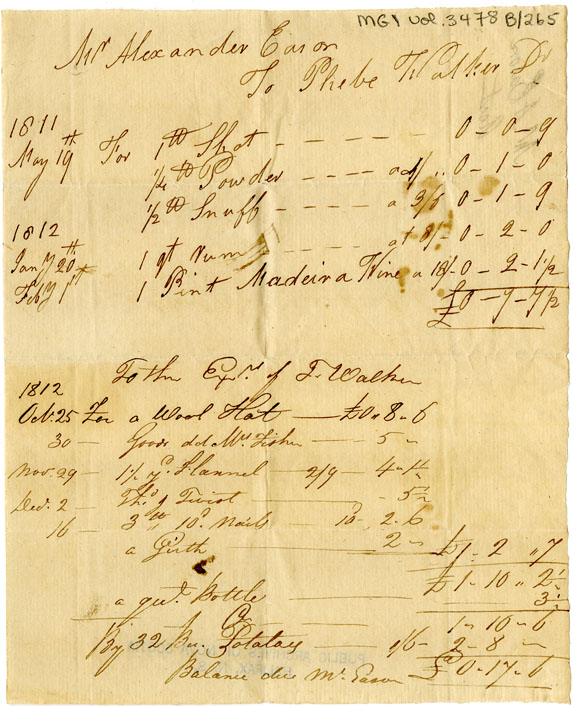 MG1 vol. 3478 B/265
Mr Alexander Eason
To Phebe Walker Dr
1811
May 19th For 1 lb Shot - - - - - 0-0-9
1/4 lb Powder - - - - a 4/ .. 0-1-0
1/2 lb Snuff - - - - a 3/5 0-1-9
1812
Jany 20th 1 qt Rum - - - - at 8/- 0-2-0
Feby 1st 1 Pint Madeira Wine a 18/- 0-2-1 1/2
£0-7-7 1/2
1812 To the Exrs of T. Walker
Oct. 25 For a Wool Hat — £0 " 8 - 6
30 — Goods dd Mrs Fisher — 5 "
Nov. 29 — 1 1/2 yd Flannel — 2/9 — 4 - 1 1/2
Decr. 2 — Twist — 5 1/2
16 — 3 lb 10d nails 10 - 2 - 6
a Girth 2 "
£1 - 2 " 7
£1 - 10 " 2 1/2
a qut. Bottle — 3 1/2
1 - 10 - 6
Cr
By 32 Bu. Potatoes 1/6 — 2 - 8 "
Balance due Mr Eason £0 - 17 - 6
PUBLIC
HALIFAX, N.S.